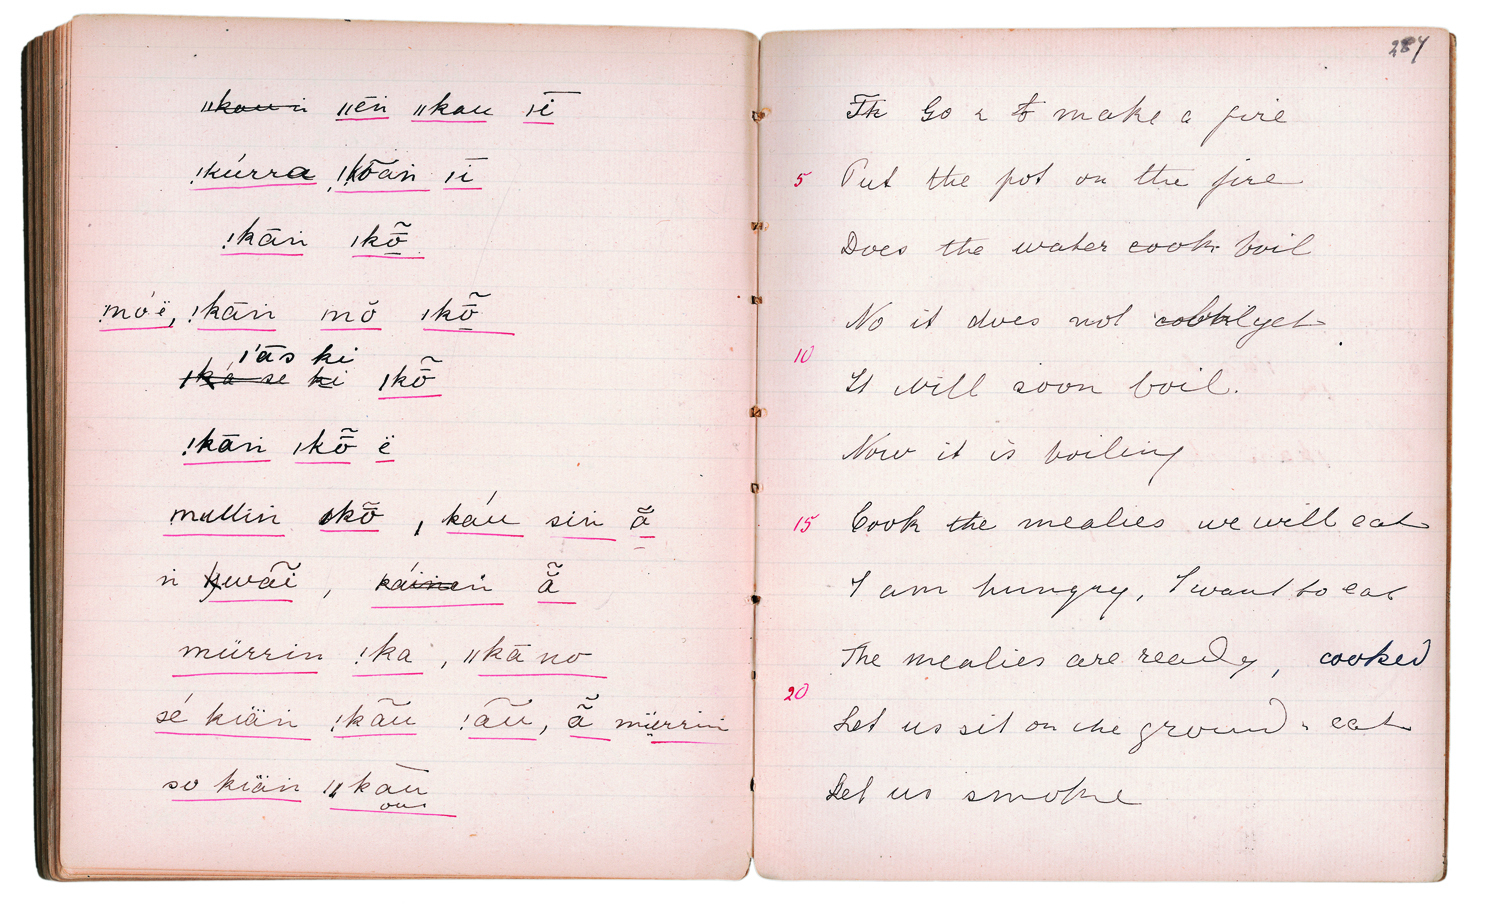 ǁkauïn ǁēn ǁkau ǀī
ǃkúrra ǃkōän ǀī
ǃkān ǀkõ̱
ǃmó'ë, ǃkān mŏ ǀkõ̱
ǀ'ās ki
ǀká se ki ǀkõ̱
ǃkān ǀkõ̱ ë
mullin ǀkõ, káu sin ã
n kwãi, ã
mürrin ǃka, ǁkā no
sé kiän ǃkãu ǃãu, ã mürrin
so kiän ǁkāu
ous
287
Go & to make a fire
5 Put the pot on the fire
Does the water cook boil
No it does not yet
10
It will soon boil.
Now it is boiling
15 Cook the mealies we will eat
I am hungry, I want to eat
The mealies are ready, cooked
20
Let us sit on the ground & eat
Let us smoke